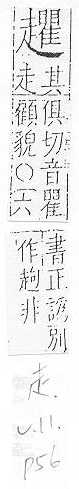 趯其俱切音瞿
走顧貌○六
書正譌別
作趜非
走.
V.11.
P56